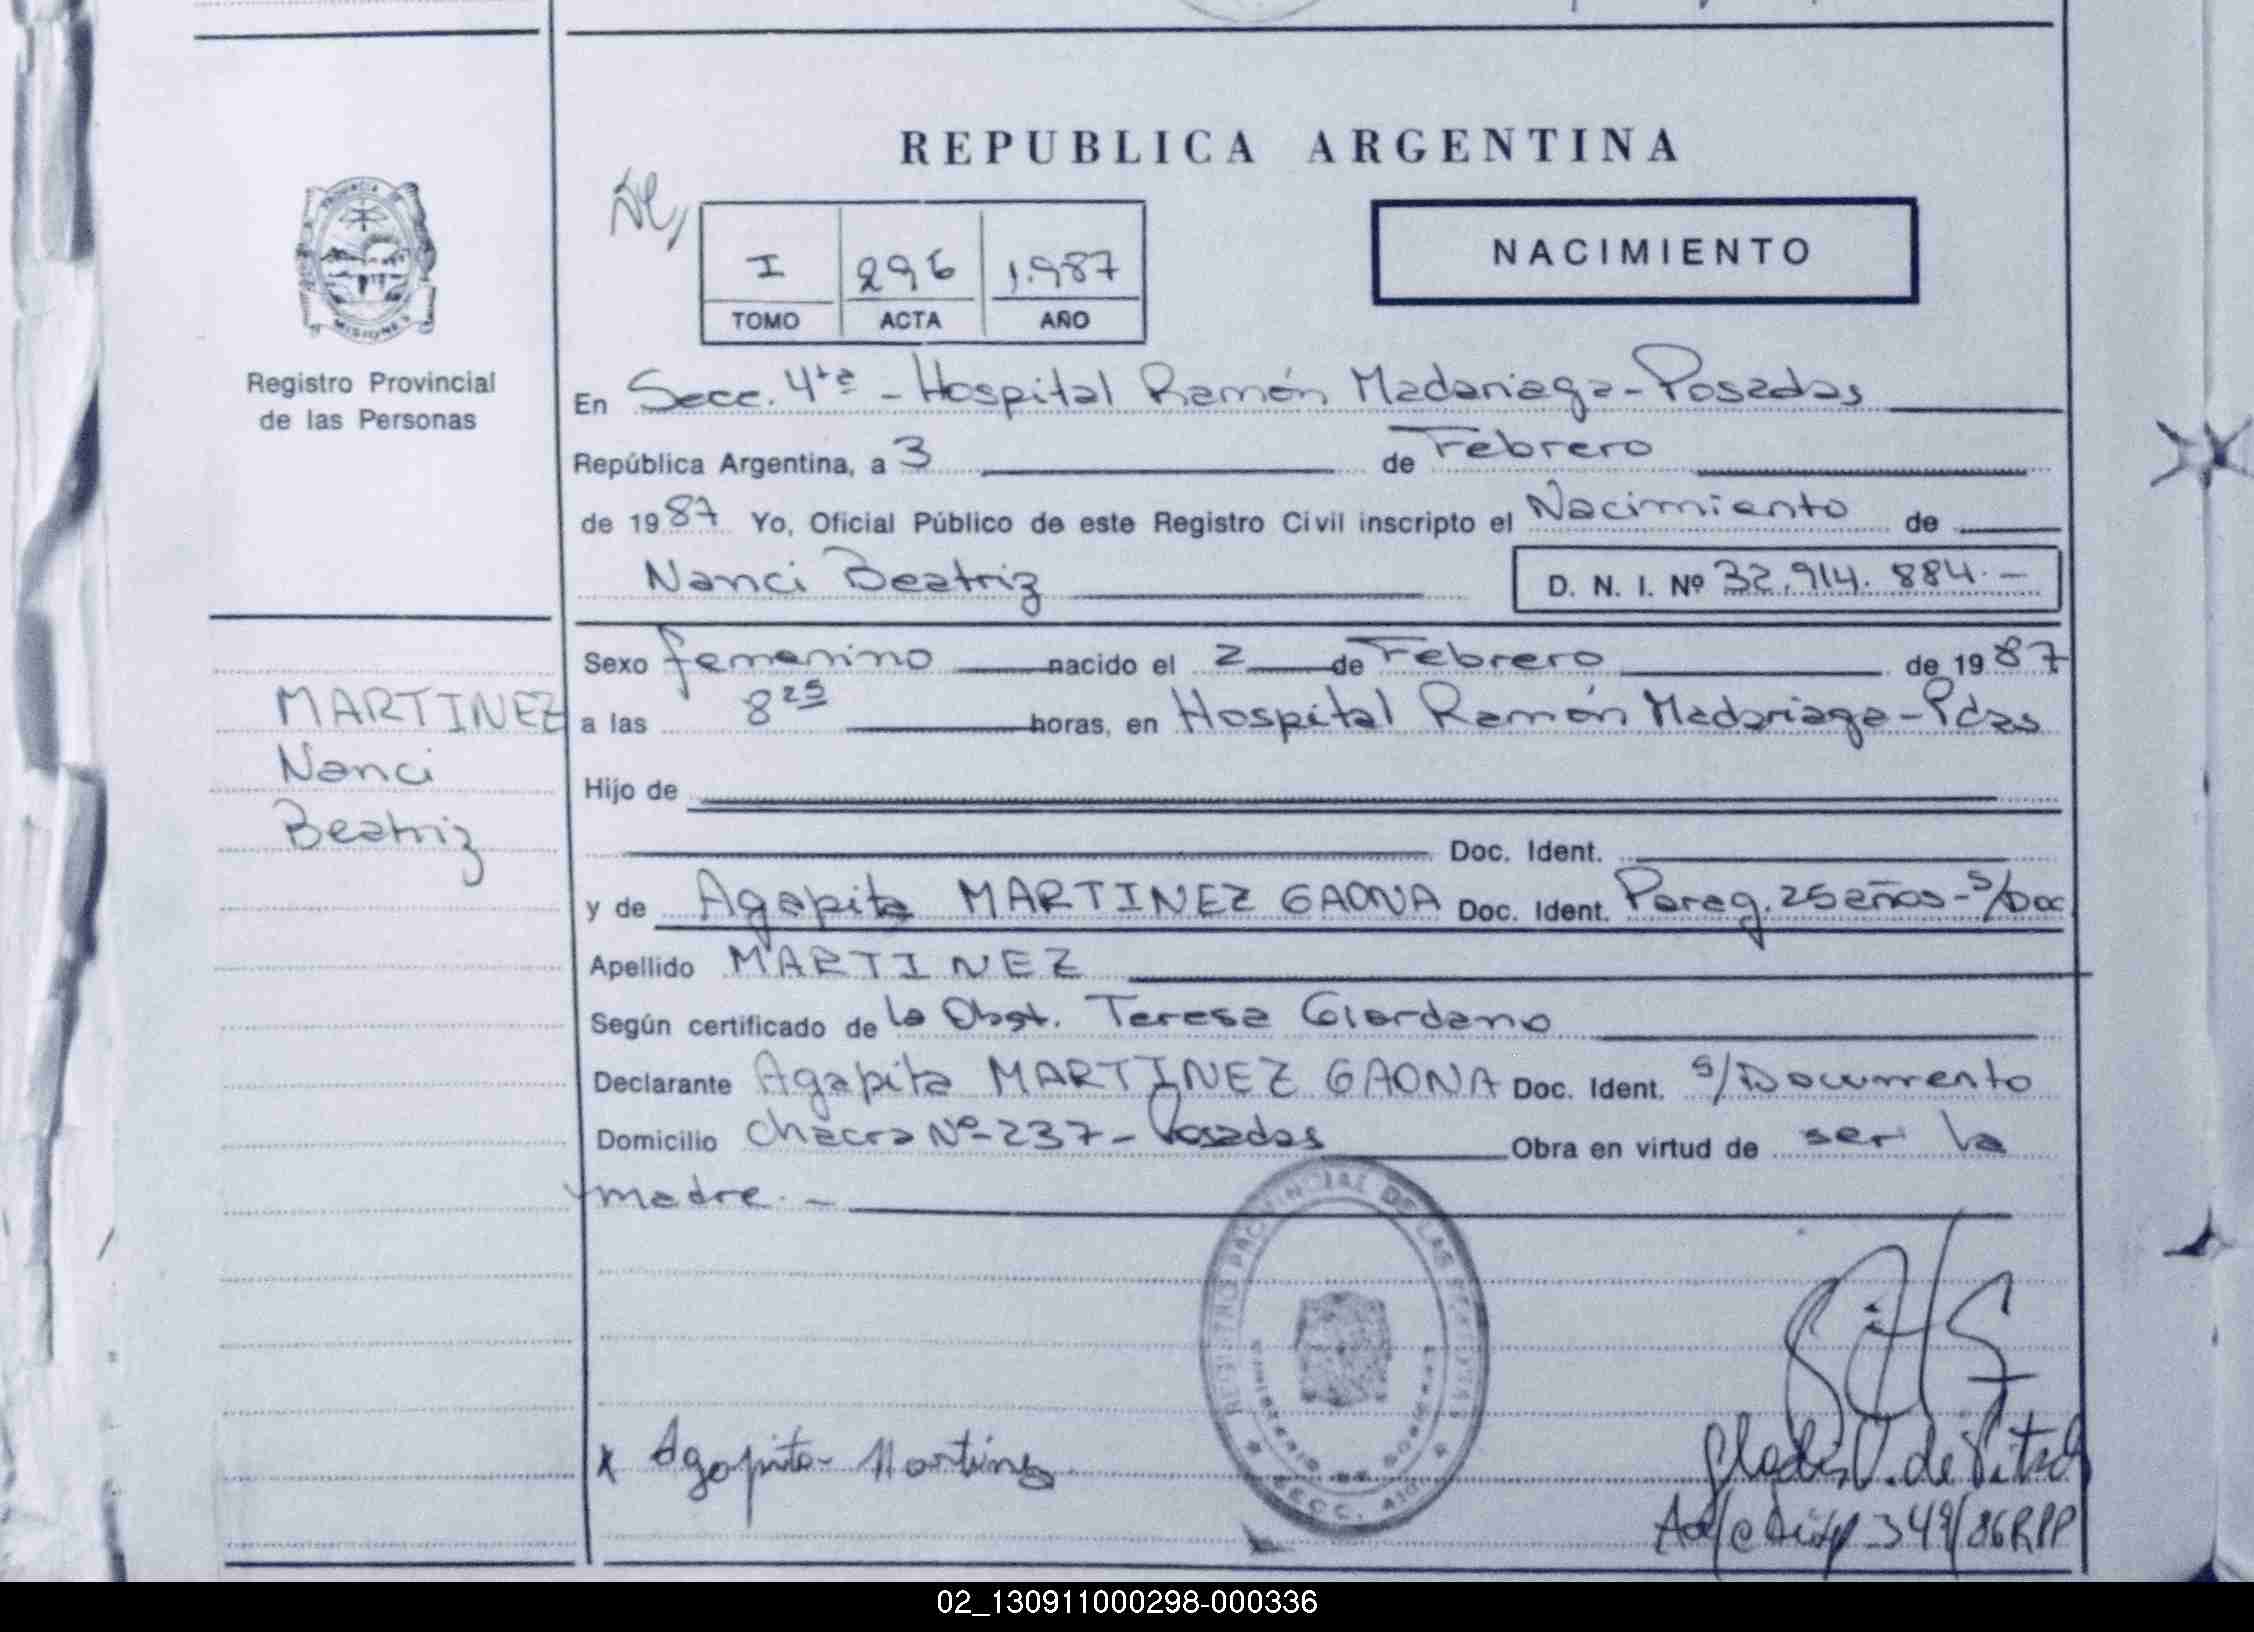 REPUBLICA ARGENTINA
I 296 1.987
TOMO ACTA AÑO
NACIMIENTO
PROVINCIA DE MISIONES
Registro Provincial
de las Personas
En Secc. 4ta - Hospital Ramón Madariaga - Posadas
República Argentina, a 3 de Febrero
de 1987 Yo, Oficial Público de este Registro Civil inscripto el Nacimiento de
Nanci Beatriz D. N. I. Nº 32.914.884.-
Sexo femenino nacido el 2 de Febrero de 1987
a las 8 25 horas, en Hospital Ramón Madariaga - Pdas
Hijo de
Doc. Ident.
y de Agapita MARTINEZ GAONA Doc. Ident. Parag. 25 años - s/Doc
Apellido MARTINEZ
Según certificado de la Obst. Teresa Giordano
Declarante Agapita MARTINEZ GAONA Doc. Ident. s/Documento
Domicilio Chacra Nº 237 - Posadas Obra en virtud de ser la
madre.-
MARTINEZ
Nanci
Beatriz
REGISTRO PROVINCIAL DE LAS PERSONAS
MINISTERIO DE GOBIERNO
SECC. 4ta
x Agapita Martinez
349/86 RPP
02_130911000298-000336